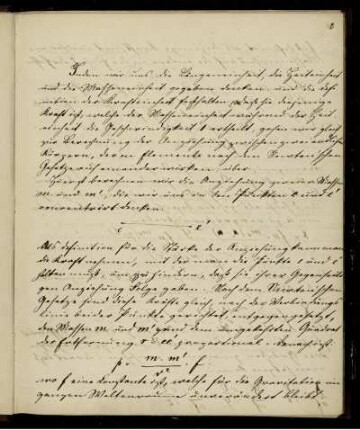 Indem wir uns die Längeneinheit, die Zeiteinheit
und die Masseneinheit gegeben denken und die Defi-
nition der Krafteinheit festhalten, daß sie diejenige
Kraft ist, welche der Masseneinheit während der Zeit-
einheit die Geschwindigkeit 1 ertheilt, gehen wir gleich
zur Berechnung der Anziehung zwischen
Körpern, deren Elemente nach dem Newton'schen
Gesetze auf einander wirken über.
Zuerst berechnen wir die Anziehung zweier Massen
m und m', die wir uns in den Punkten
concentrirt denken.
Als Definition für die Stärke der Anziehung kann man
die Kraft nehmen, mit der man die Punkte
halten muß, um zu hindern, daß sie ihrer gegenseiti-
gen Anziehung Folge geben. Nach dem Newton'schen
Gesetze sind diese Kräfte gleich, nach der Verbindungs-
linie beider Punkte gerichtet, entgegengesetzt,
den Massen m und m' und dem umgekehrten Quadrat
der Entfernung proportional. Demnach ist
p = m. m' / r² f
wo f eine Constante ist, welche für die Gravitation im
ganzen Weltenraum unverändert bleibt.